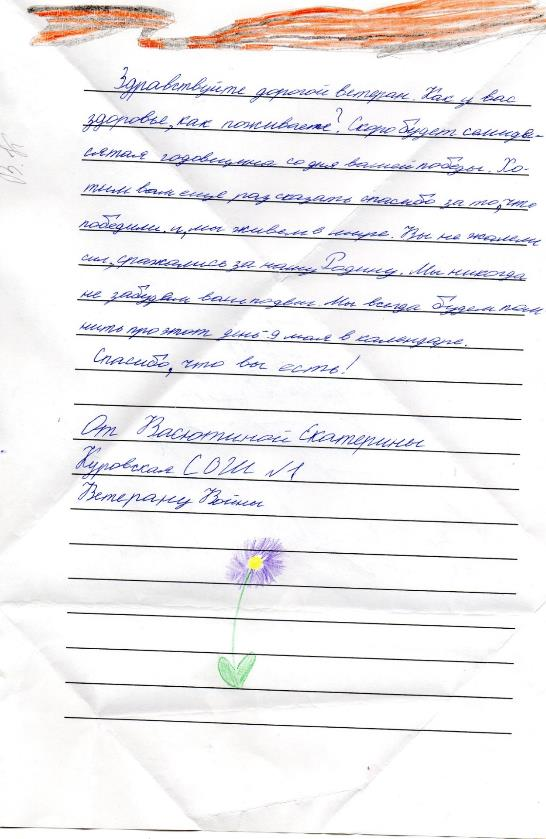 Здравствуйте дорогой ветеран. Как у вас
здоровье, как поживаете? Скоро будет семиде-
сятая годовщина со дня вашей победы. Хо-
тим вам еще раз сказать спасибо за то, что
победили и, мы живем в мире. Вы не жалели
сил, сражались за нашу Родину. Мы никогда
не забудем ваш подвиг. Мы всегда будем пом
нить про этот день-9 мая в календаре.
Спасибо, что вы есть!
От Васютиной Екатерины
Куровская СОШ №1
Ветерану Войны